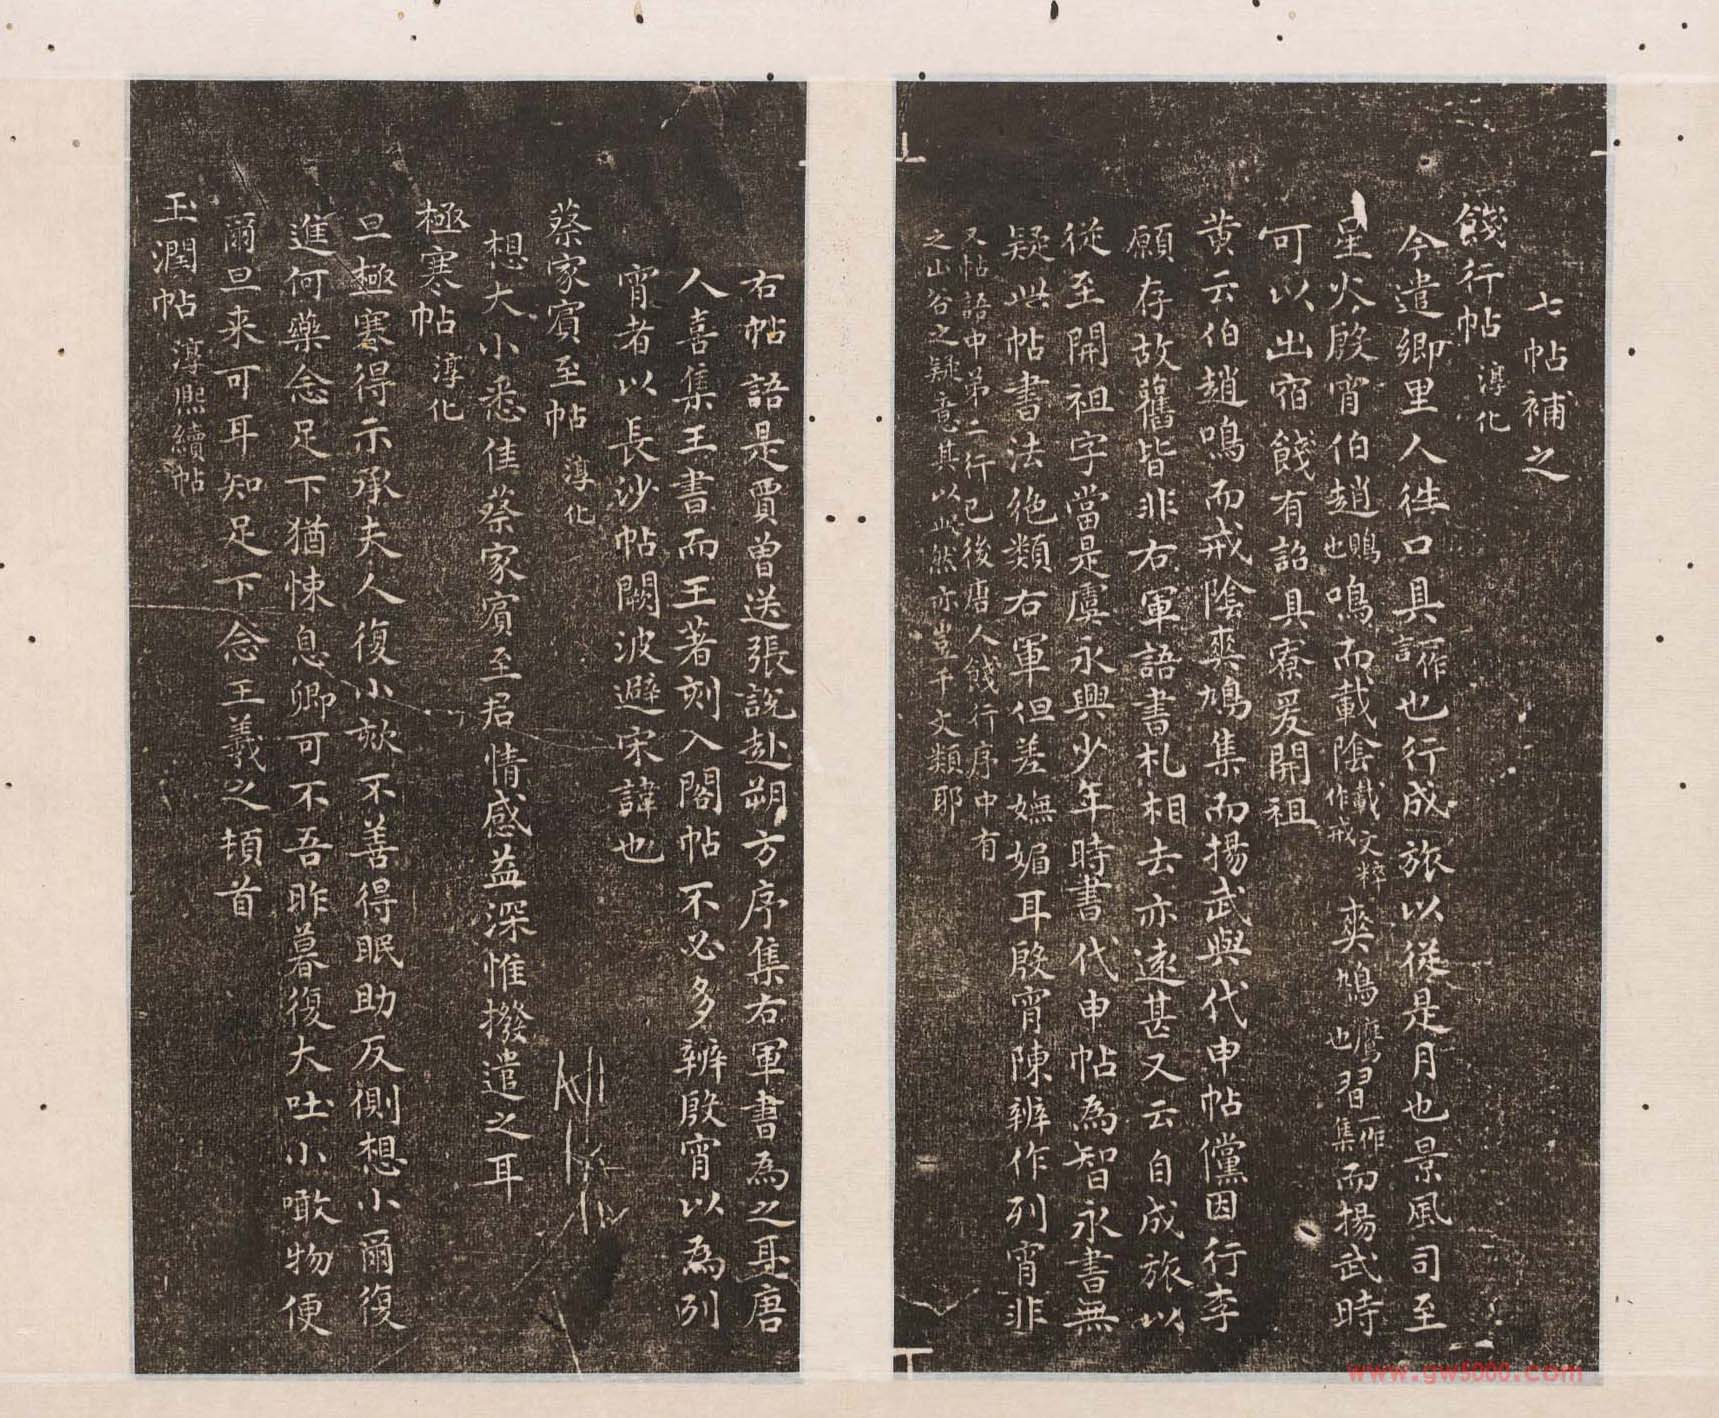 七帖補之
餞行帖 淳化
今遣鄉里人往口具一作言也行成旅以從是月也景風司至
星火殷宵伯趙鵙也鳴而載陰載文粹作戒爽鳩鷹也習一作集而揚武時
可以出宿餞有詔具寮爰開祖
黄云伯趙鳴而戒陰爽鳩集而揚武與代申帖儻因行李
願存故舊皆非右軍語書札相去亦遠甚又云自成旅以
從至開祖字當是虞永興少年時書代申帖為智永書無
疑此帖書法絶類右軍但差嫵媚耳殷宵陳辨作列宵非
又帖語中第二行已後唐人餞行序中有
之山谷之疑意其以此然亦豈千文類耶
右帖語是賈曾送張說赴朔方序集右軍書為之耳唐
人喜集王書而王著刻入閣帖不必多辨殷宵以為列
宵者以長沙帖闕波避宋諱也
蔡家賓至帖 淳化
想大小悉佳蔡家賓至君情感益深惟撥遣之耳
極寒帖 淳化
旦極寒得示承夫人復小欬不善得眠助反側想小爾復
進何藥念足下猶悚息卿可不吾昨暮復大吐小噉物便
爾旦来可耳知足下念王羲之頓首
玉潤帖 淳熙續帖
www.gw5000.com